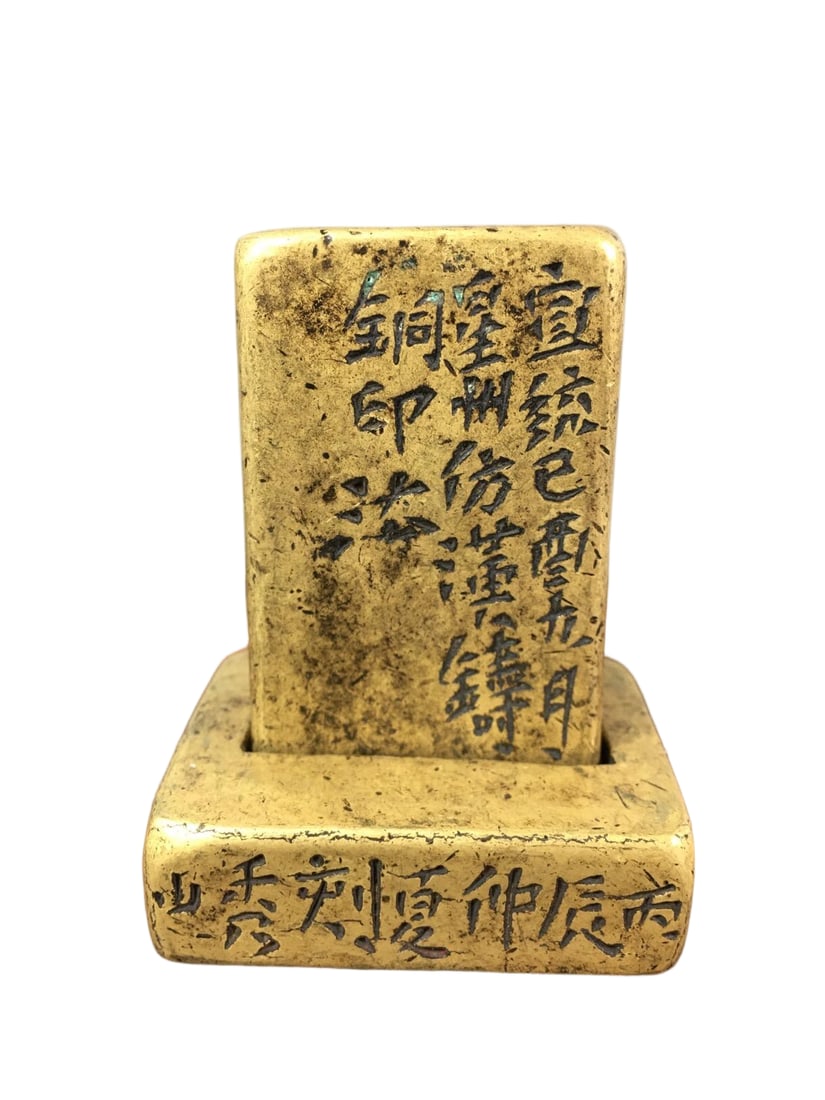 宣統己酉九月
星州仿漢鑄
銅印法
丙辰仲夏刻秀山